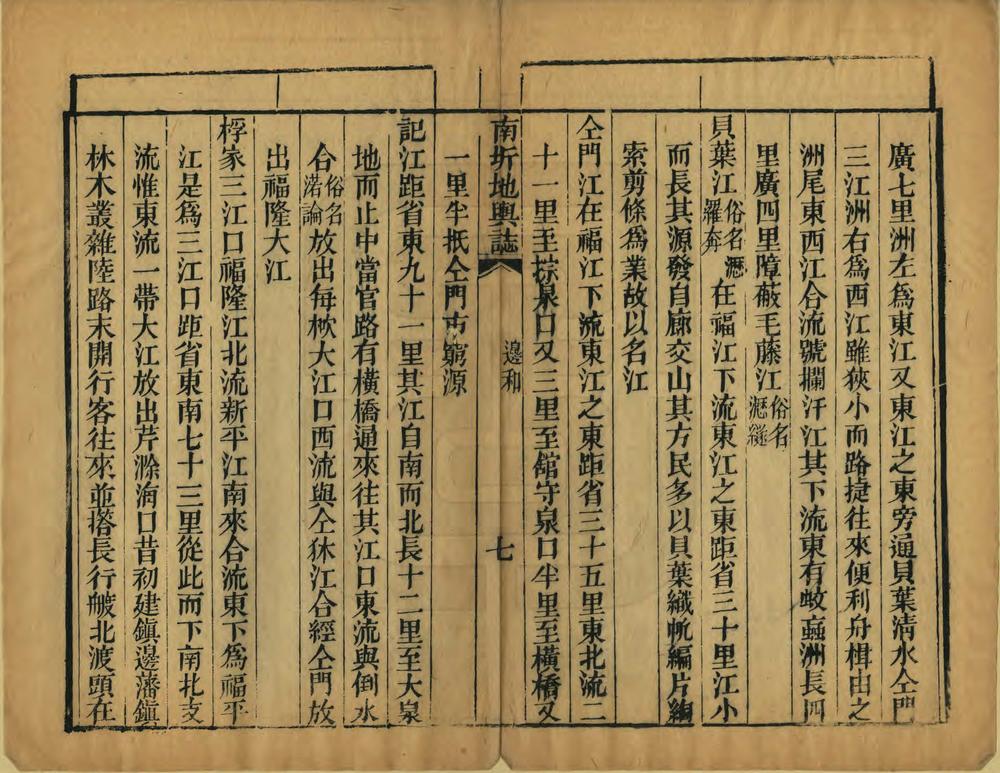 廣七里洲左爲東江又東江之東旁通貝葉清水仝門
三江洲右爲西江雖狹小而路捷往來便利舟楫由之
洲尾東西江合流號攔汗江其下流東有蚊䖟洲長四
里廣四里障蔽毛藤江俗名瀝縫
貝葉江俗名瀝羅奔在福江下流東江之東距省三十里江小
而長其源發自廊交山其方民多以貝葉織帆編片綯
索剪條爲業故以名江
仝門江在福江下流東江之東距省三十五里東北流二
十一里至掠泉口又三里至舘守泉口半里至橫橋又
南圻地輿誌 邊和 七
一里半抵仝門市窮源
記江距省東九十一里其江自南而北長十二里至大泉
地而止中當官路有橫橋通來往其江口東流與倒水
合俗名渃論放出每楸大江口西流與仝休江合經仝門放
出福隆大江
桴家三江口福隆江北流新平江南來合流東下爲福平
江是爲三江口距省東南七十三里從此而下南北支
流惟東流一帶大江放出芹滁海口昔初建鎮邊藩鎮
林木叢雜陸路未開行客往來並搭長行艘北渡頭在